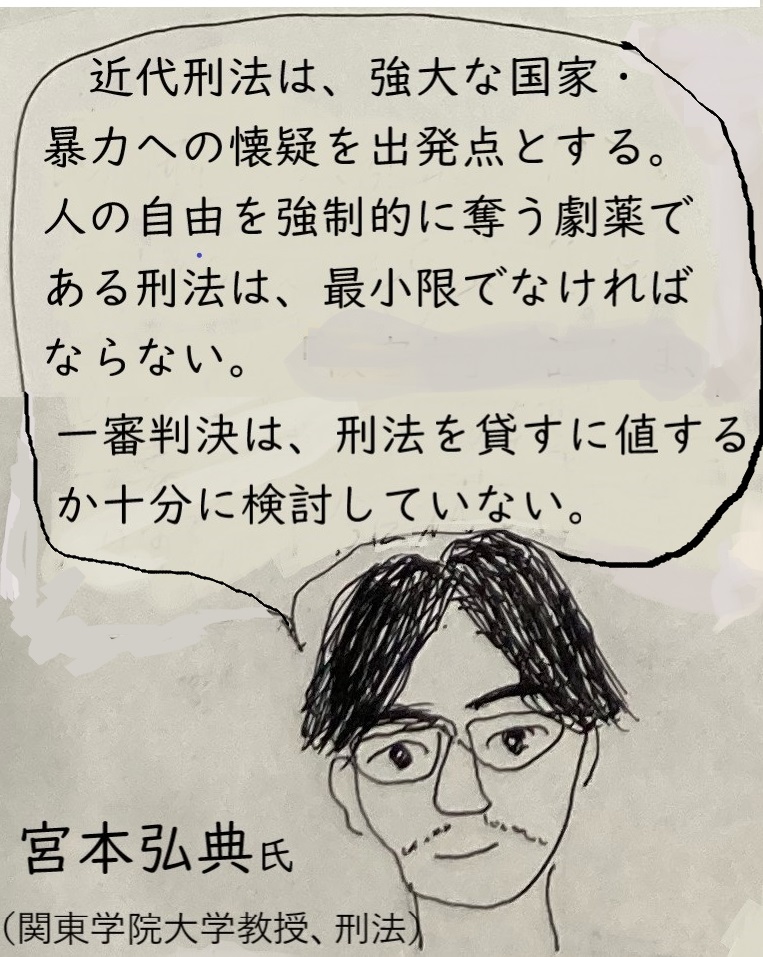 近代刑法は、強大な国家・
暴力への懐疑を出発点とする。
人の自由を強制的に奪う劇薬で
ある刑法は、最小限でなければ
ならない。
一審判決は、刑法を貸すに値する
か十分に検討していない。
宮本弘典氏
（関東学院大学教授、刑法）